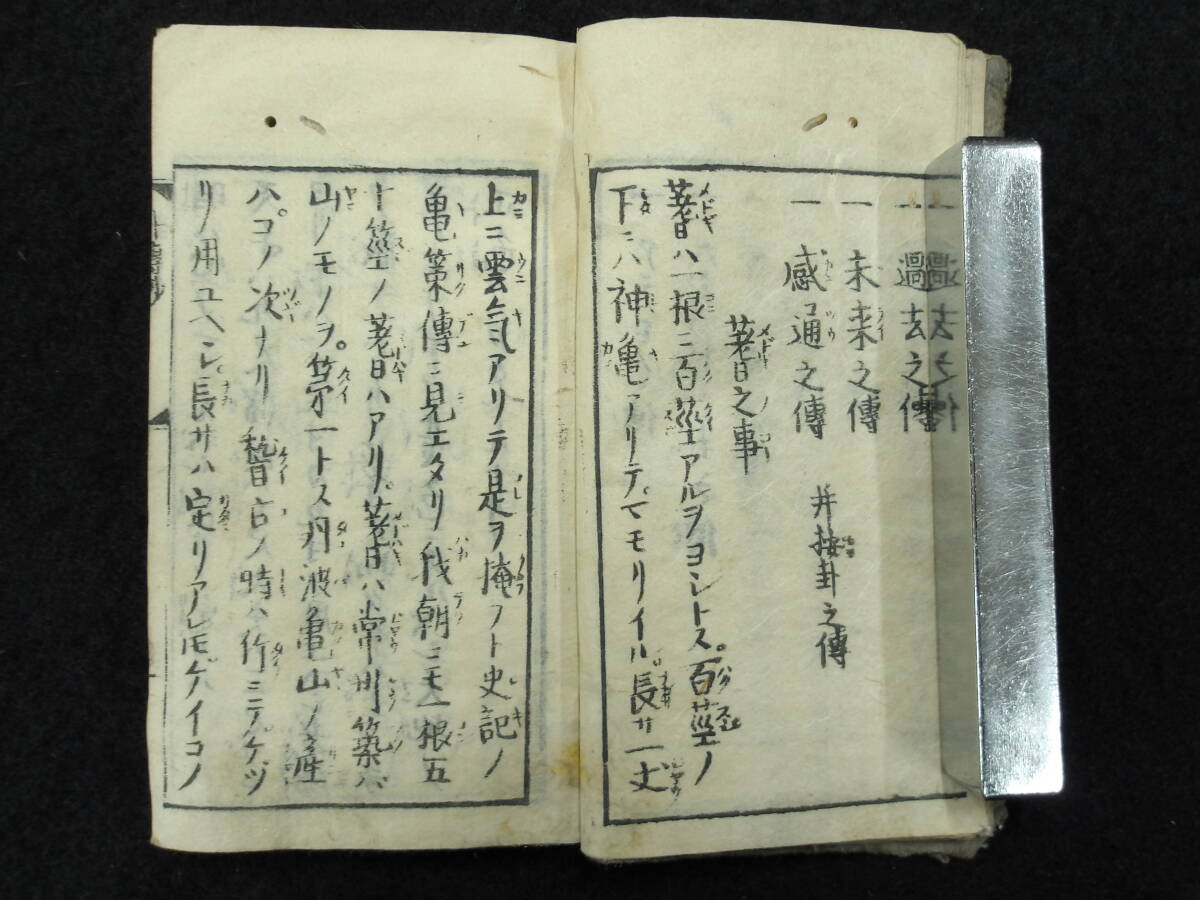 一 過去之傳
一 未来之傳
一 感通之傳 并按卦之傳
蓍之事
蓍ハ一根ニ百莖アルヲヨシトス百莖ノ
下ニハ神亀アリテマモリイル長サ一丈
上ニ雲気アリテ是ヲ掩フト史記ノ
亀策傳ニ見エタリ我朝ニモ一根五
十莖ノ蓍ハアリ蓍ハ常州筑バ
山ノモノヲ第一トス丹波亀山ノ産
ハコノ次ナリ 稽古ノ時ハ竹ニテケヅ
リ用ユヘシ長サハ定リアレ𪜈ゲイコノ